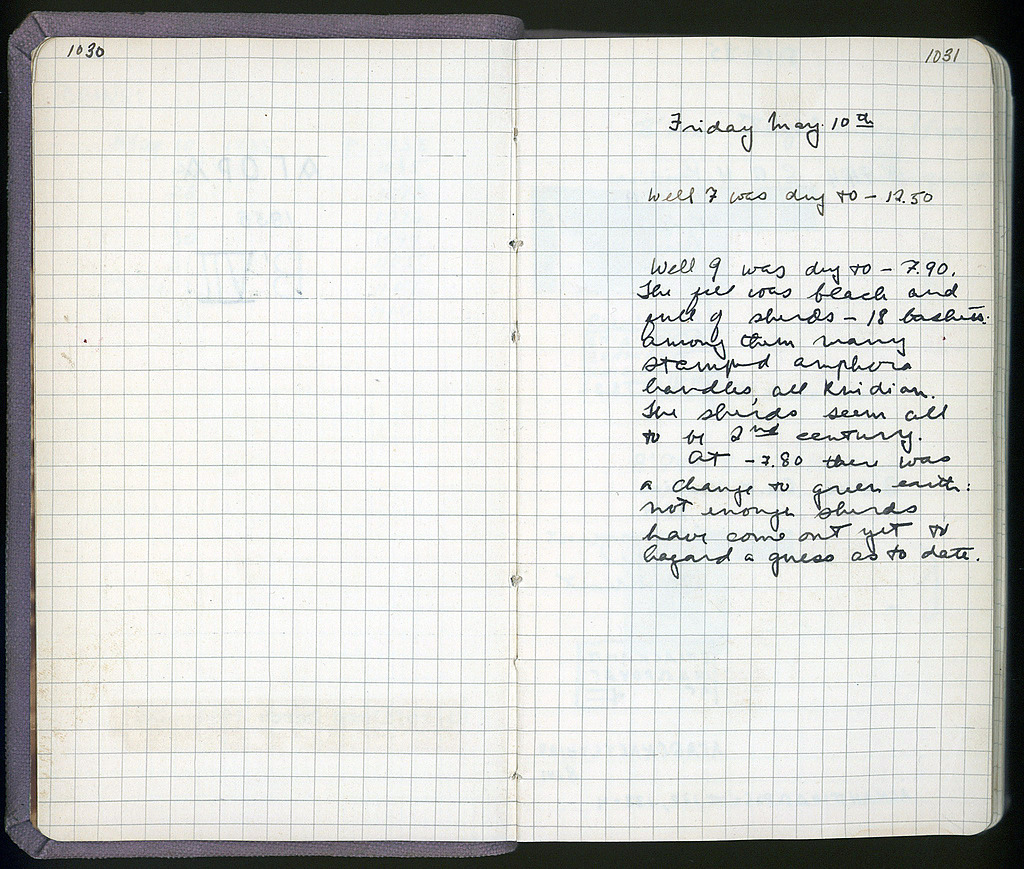 1030
1031
Friday May. 10th
Well 7 was dug to - 12.50
Well 9 was dug to - 7.90.
The fill was black and
full of sherds - 18 baskets:
among them many
stamped amphora
handles, all Knidian.
The sherds seem all
to be 2nd century.
At - 7.80 there was
a change to green earth:
not enough sherds
have come out yet to
hazard a guess as to date.